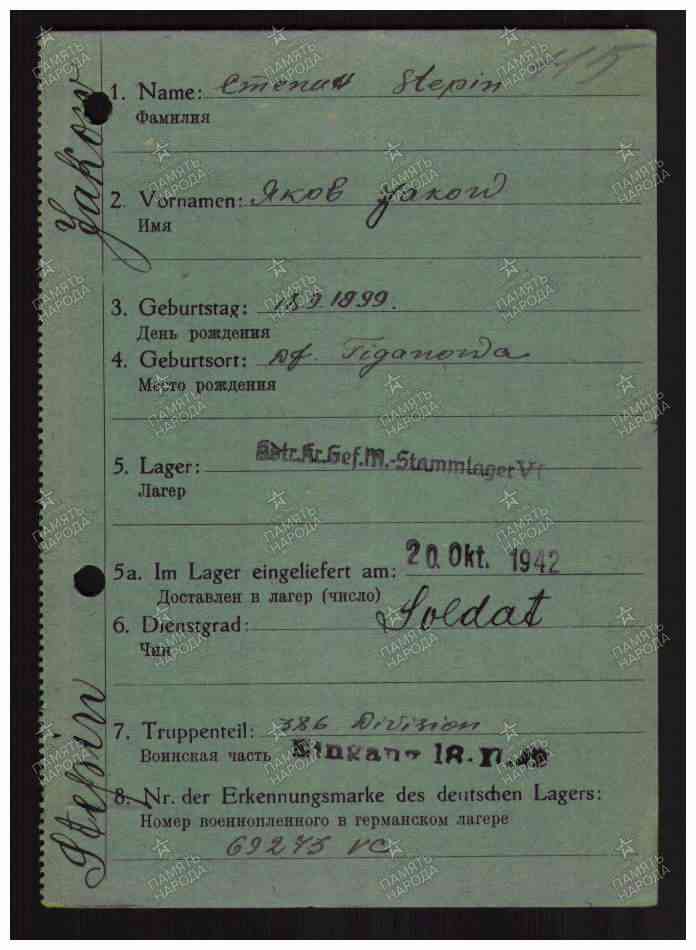 1. Name: Степин Stepin
Фамилия
2. Vornamen: Яков Jakow
Имя
3. Geburtstag: 18.9.1899.
День рождения
4. Geburtsort: Df. Tiganowa
Место рождения
5. Lager: Kr.Gef.M.-Stammlager V
Лагерь
5a. Im Lager eingeliefert am: 20. Okt. 1942
Доставлен в лагер (число)
6. Dienstgrad: Soldat
Чин
7. Truppenteil: 386 Division
Воинская часть Eingang 18.
8. Nr. der Erkennungsmarke des deutschen Lagers:
Номер военнопленного в германском лагере
69275 VC
Stepin Jakow
ПАМЯТЬ НАРОДА